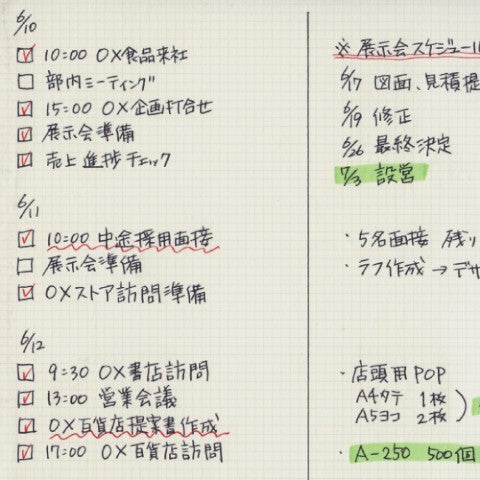 6/10
10:00 OX食品来社
部内ミーティング
15:00 OX企画打合せ
展示会準備
売上進捗チェック
6/11
10:00 中途採用面接
展示会準備
OXストア訪問準備
6/12
9:30 OX書店訪問
13:00 営業会議
OX百貨店提案書作成
17:00 OX百貨店訪問
※展示会スケジュール
6/17 図面、見積提
6/19 修正
6/26 最終決定
7/3 設営
・5名面接 残り
・ラフ作成→デザ
・店頭用POP
A4タテ 1枚
A5ヨコ 2枚
・A-250 500個